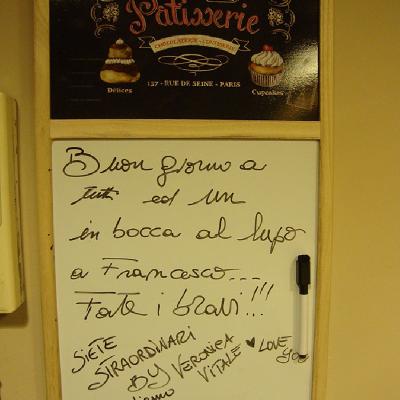 Patisserie
CHOCOLATERIE - CONFISERIE
137 - RUE DE SEINE - PARIS
Délices
Cupcakes
Buon giorno a
tutti ed un
in bocca al lupo
a Francesco...
Fate i bravi!!!
SIETE
STRAORDINARI
BY VERONICA
VITALE ♥ LOVE
you